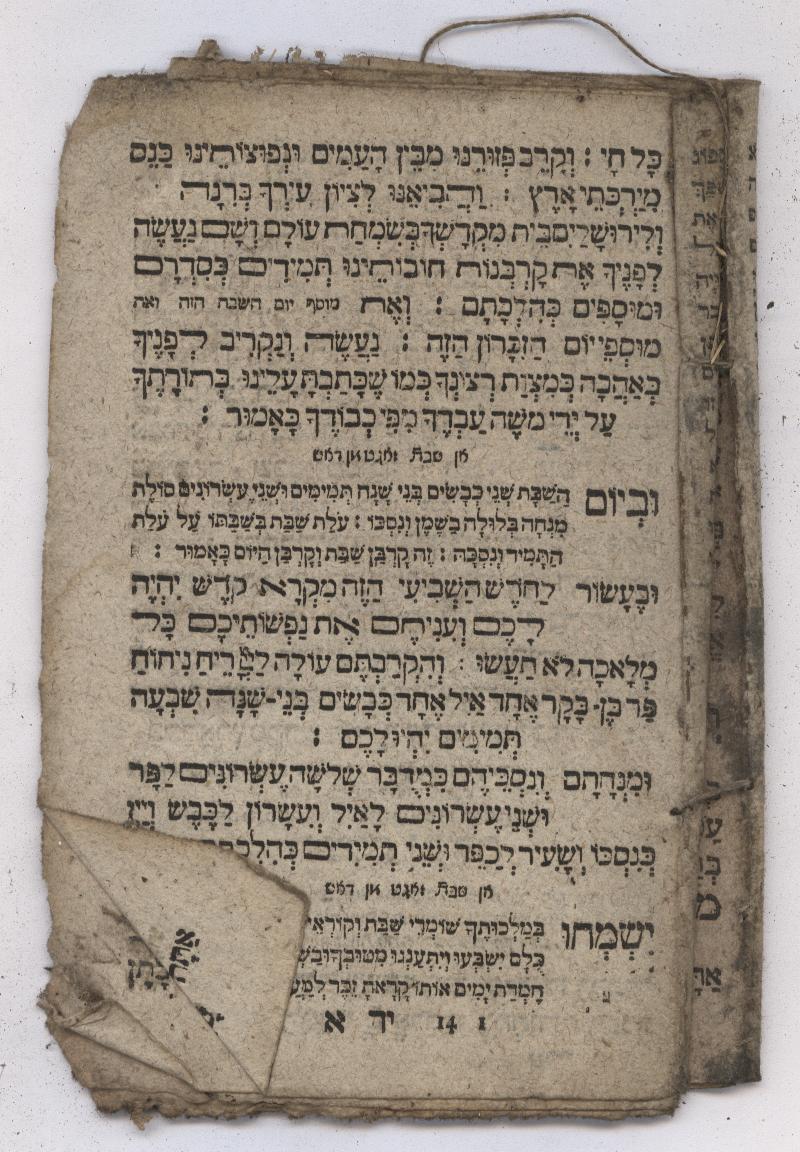 כָּל חָי : וְקָרֵב פְּזוּרֵנוּ מִבֵּין הָעַמִּים וּנְפוּצוֹתֵינוּ כַּנֵּס
מִיַּרְכְּתֵי אָרֶץ : וַהֲבִיאֵנוּ לְצִיּוֹן עִירְךָ בְּרִנָּה
וְלִירוּשָׁלַיִם בֵּית מִקְדָּשְׁךָ בְּשִׂמְחַת עוֹלָם וְשָׁם נַעֲשֶׂה
לְפָנֶיךָ אֶת קָרְבְּנוֹת חוֹבוֹתֵינוּ תְּמִידִים כְּסִדְרָם
וּמוּסָפִים כְּהִלְכָתָם : וְאֶת מוסף יום השבת הזה ואת
מוּסְפֵי יוֹם הַזִּכָּרוֹן הַזֶּה : נַעֲשֶׂה וְנַקְרִיב לְפָנֶיךָ
בְּאַהֲבָה כְּמִצְוַת רְצוֹנֶךָ כְּמוֹ שֶׁכָּתַבְתָּ עָלֵינוּ בְּתוֹרָתֶךָ
עַל יְדֵי מֹשֶׁה עַבְדֶּךָ מִפִּי כְבוֹדֶךָ כָּאָמוּר :
אן שבת זאגט מן דאש
וּבְיוֹם הַשַּׁבָּת שְׁנֵי כְבָשִׂים בְּנֵי שָׁנָה תְּמִימִים וּשְׁנֵי עֶשְׂרוֹנִים סוֹלֶת
מִנְחָה בְּלוּלָה בַשֶּׁמֶן וְנִסְכּוֹ : עֹלַת שַׁבַּת בְּשַׁבַּתּוֹ עַל עֹלַת
הַתָּמִיד וְנִסְכָּהּ : זֶה קָרְבַּן שַׁבָּת וְקָרְבַּן הַיּוֹם כָּאָמוּר :
וּבֶעָשׂוֹר לַחֹדֶשׁ הַשְּׁבִיעִי הַזֶּה מִקְרָא קֹדֶשׁ יִהְיֶה
לָכֶם וְעִנִּיתֶם אֶת נַפְשׁוֹתֵיכֶם כָּל
מְלָאכָה לֹא תַעֲשׂוּ : וְהִקְרַבְתֶּם עוֹלָה לַיְיָ רֵיחַ נִיחוֹחַ
פַּר בֶּן־בָּקָר אֶחָד אַיִל אֶחָד כְּבָשִׂים בְּנֵי־שָׁנָה שִׁבְעָה
תְּמִימִים יִהְיוּ לָכֶם :
וּמִנְחָתָם וְנִסְכֵּיהֶם כִּמְדֻבָּר שְׁלֹשָׁה עֶשְׂרוֹנִים לַפָּר
וּשְׁנֵי עֶשְׂרוֹנִים לָאַיִל וְעִשָּׂרוֹן לַכֶּבֶשׂ וְיַיִן
כְּנִסְכּוֹ וְשָׂעִיר לְכַפֵּר וּשְׁנֵי תְמִידִים כְּהִלְכָתָם
אן שבת זאגט מן דאש
יִשְׂמְחוּ בְּמַלְכוּתְךָ שׁוֹמְרֵי שַׁבָּת וְקוֹרְאֵי
כֻּלָּם יִשְׂבְּעוּ וְיִתְעַנְּגוּ מִטּוּבֶךָ
חֶמְדַּת יָמִים אוֹתוֹ קָרָאתָ זֵכֶר
יד א 14 1